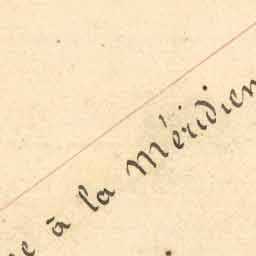 à la Méridien